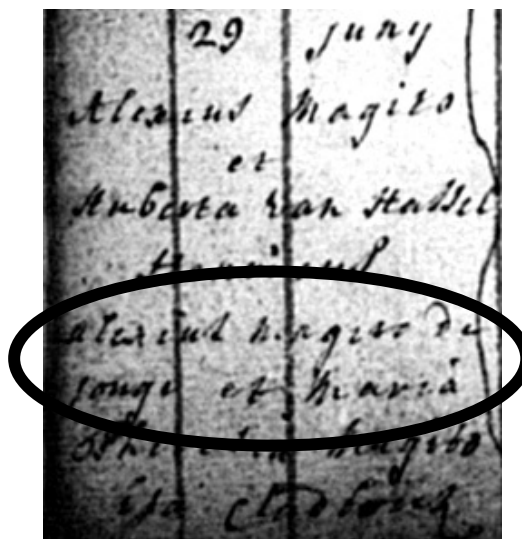 29 juny
Alexius Magito
et
Huberta van Hassel
alexius magito de
jonge et maria
Magito